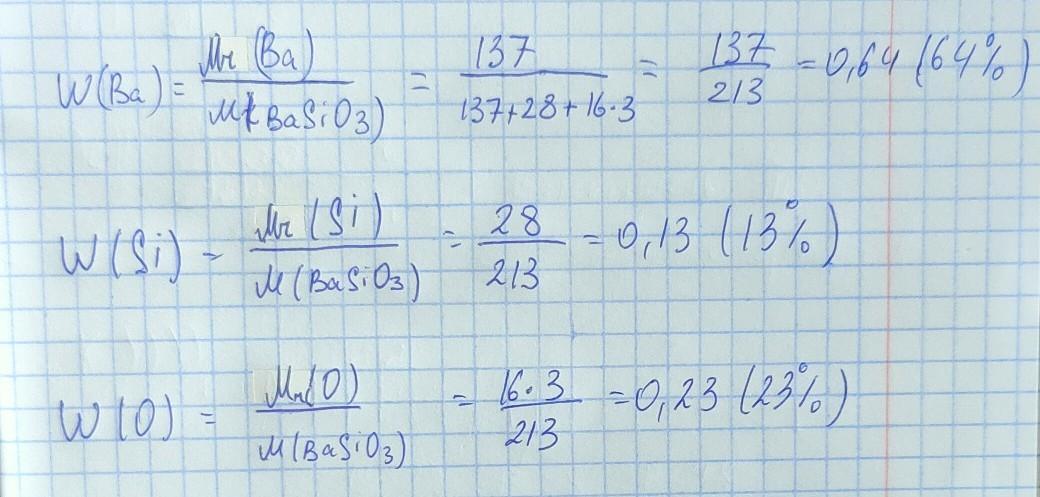 W(Ba) = Mr(Ba) / M(BaSiO3) = 137 / 137+28+16·3 = 137 / 213 = 0,64 (64%)
W(Si) = Mr(Si) / M(BaSiO3) = 28 / 213 = 0,13 (13%)
W(O) = Mr(O) / M(BaSiO3) = 16·3 / 213 = 0,23 (23%)